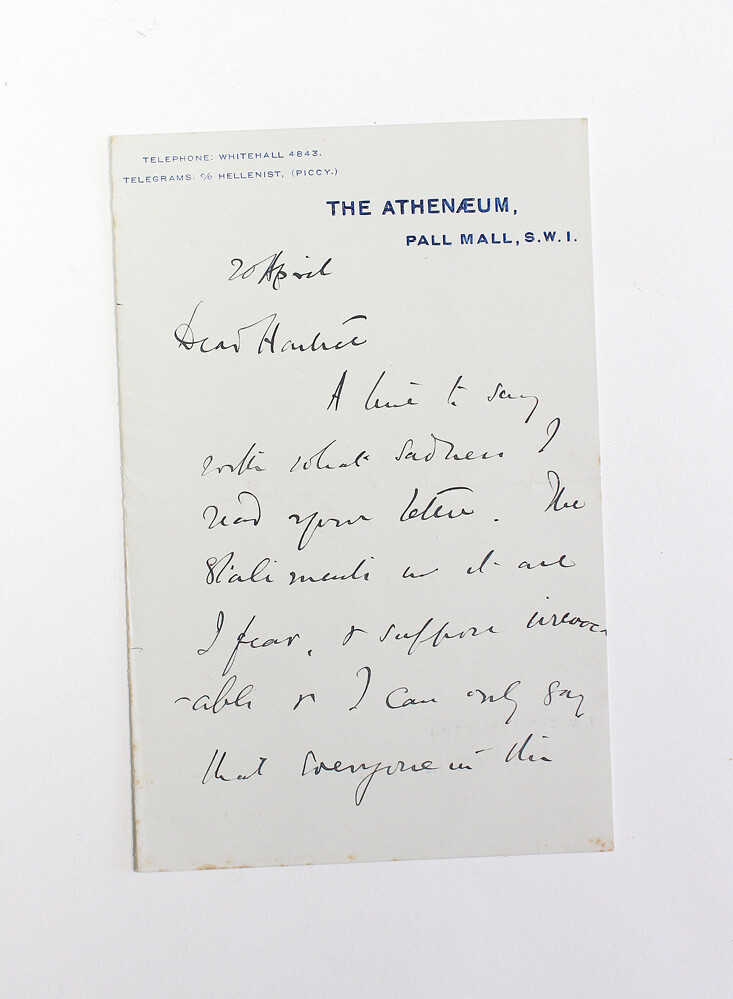 TELEPHONE: WHITEHALL 4843.
TELEGRAMS: c/o HELLENIST, (PICCY.)
THE ATHENÆUM,
PALL MALL, S.W.1.
20 April
Dear
A line to say
with what sadness I
read your letter. The
statements in it are
I fear, & suppose irrevoc
-able & I can only say
that everyone in this